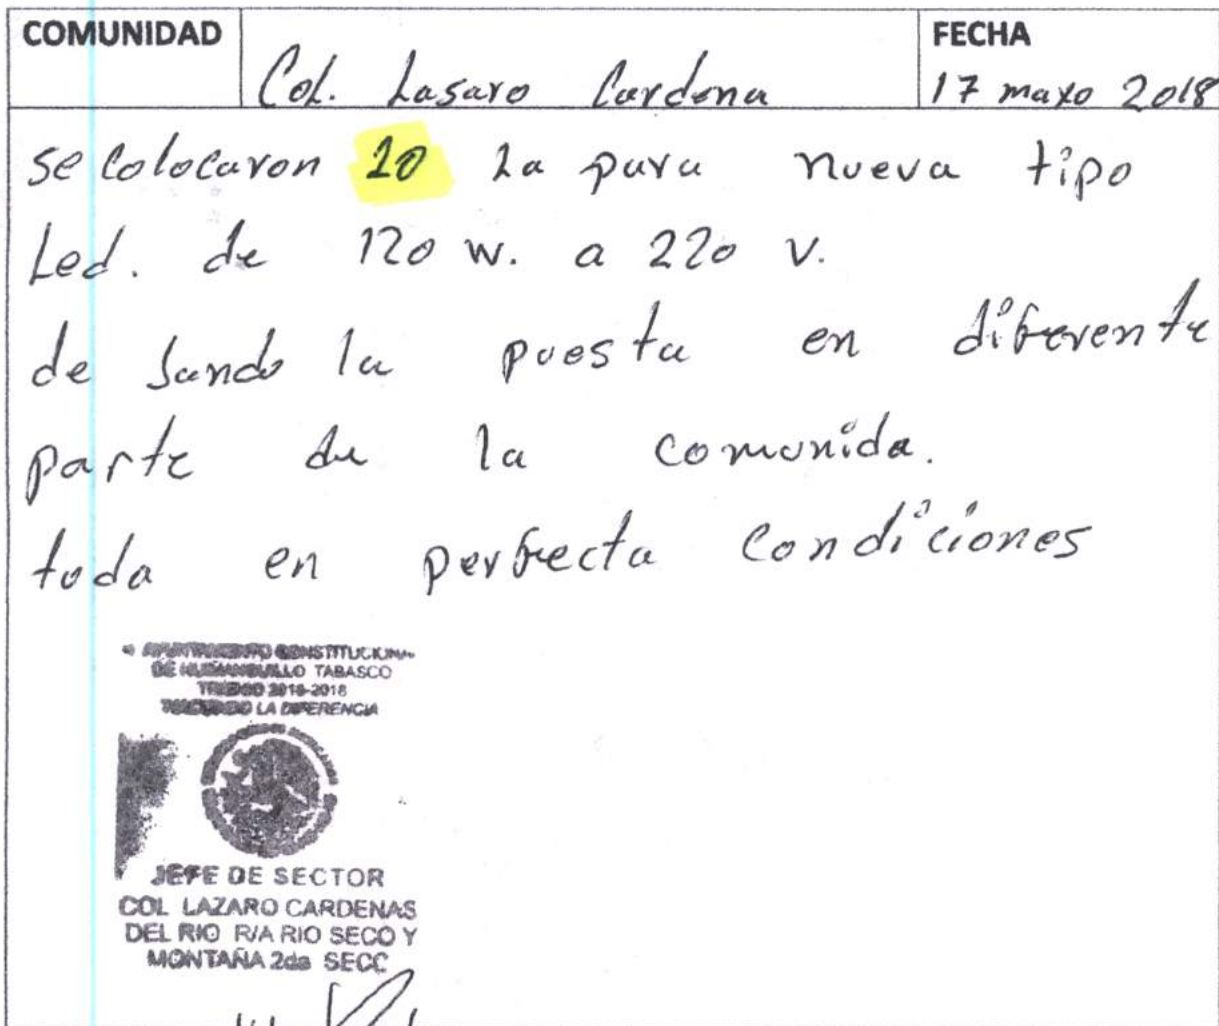 COMUNIDAD
Col. Lasaro Cardena
FECHA
17 mayo 2018
se Colocaron 20 La para nueva tipo
Led. de 120 w. a 220 v.
de Jando la puesta en diferente
parte de la comunida.
toda en perfecta Condiciones
CONSTITUCIONAL
DE HUIMANGUILLO TABASCO
LA DIFERENCIA
JEFE DE SECTOR
COL LAZARO CARDENAS
DEL RIO R/A RIO SECO Y
MONTAÑA 2da SECC